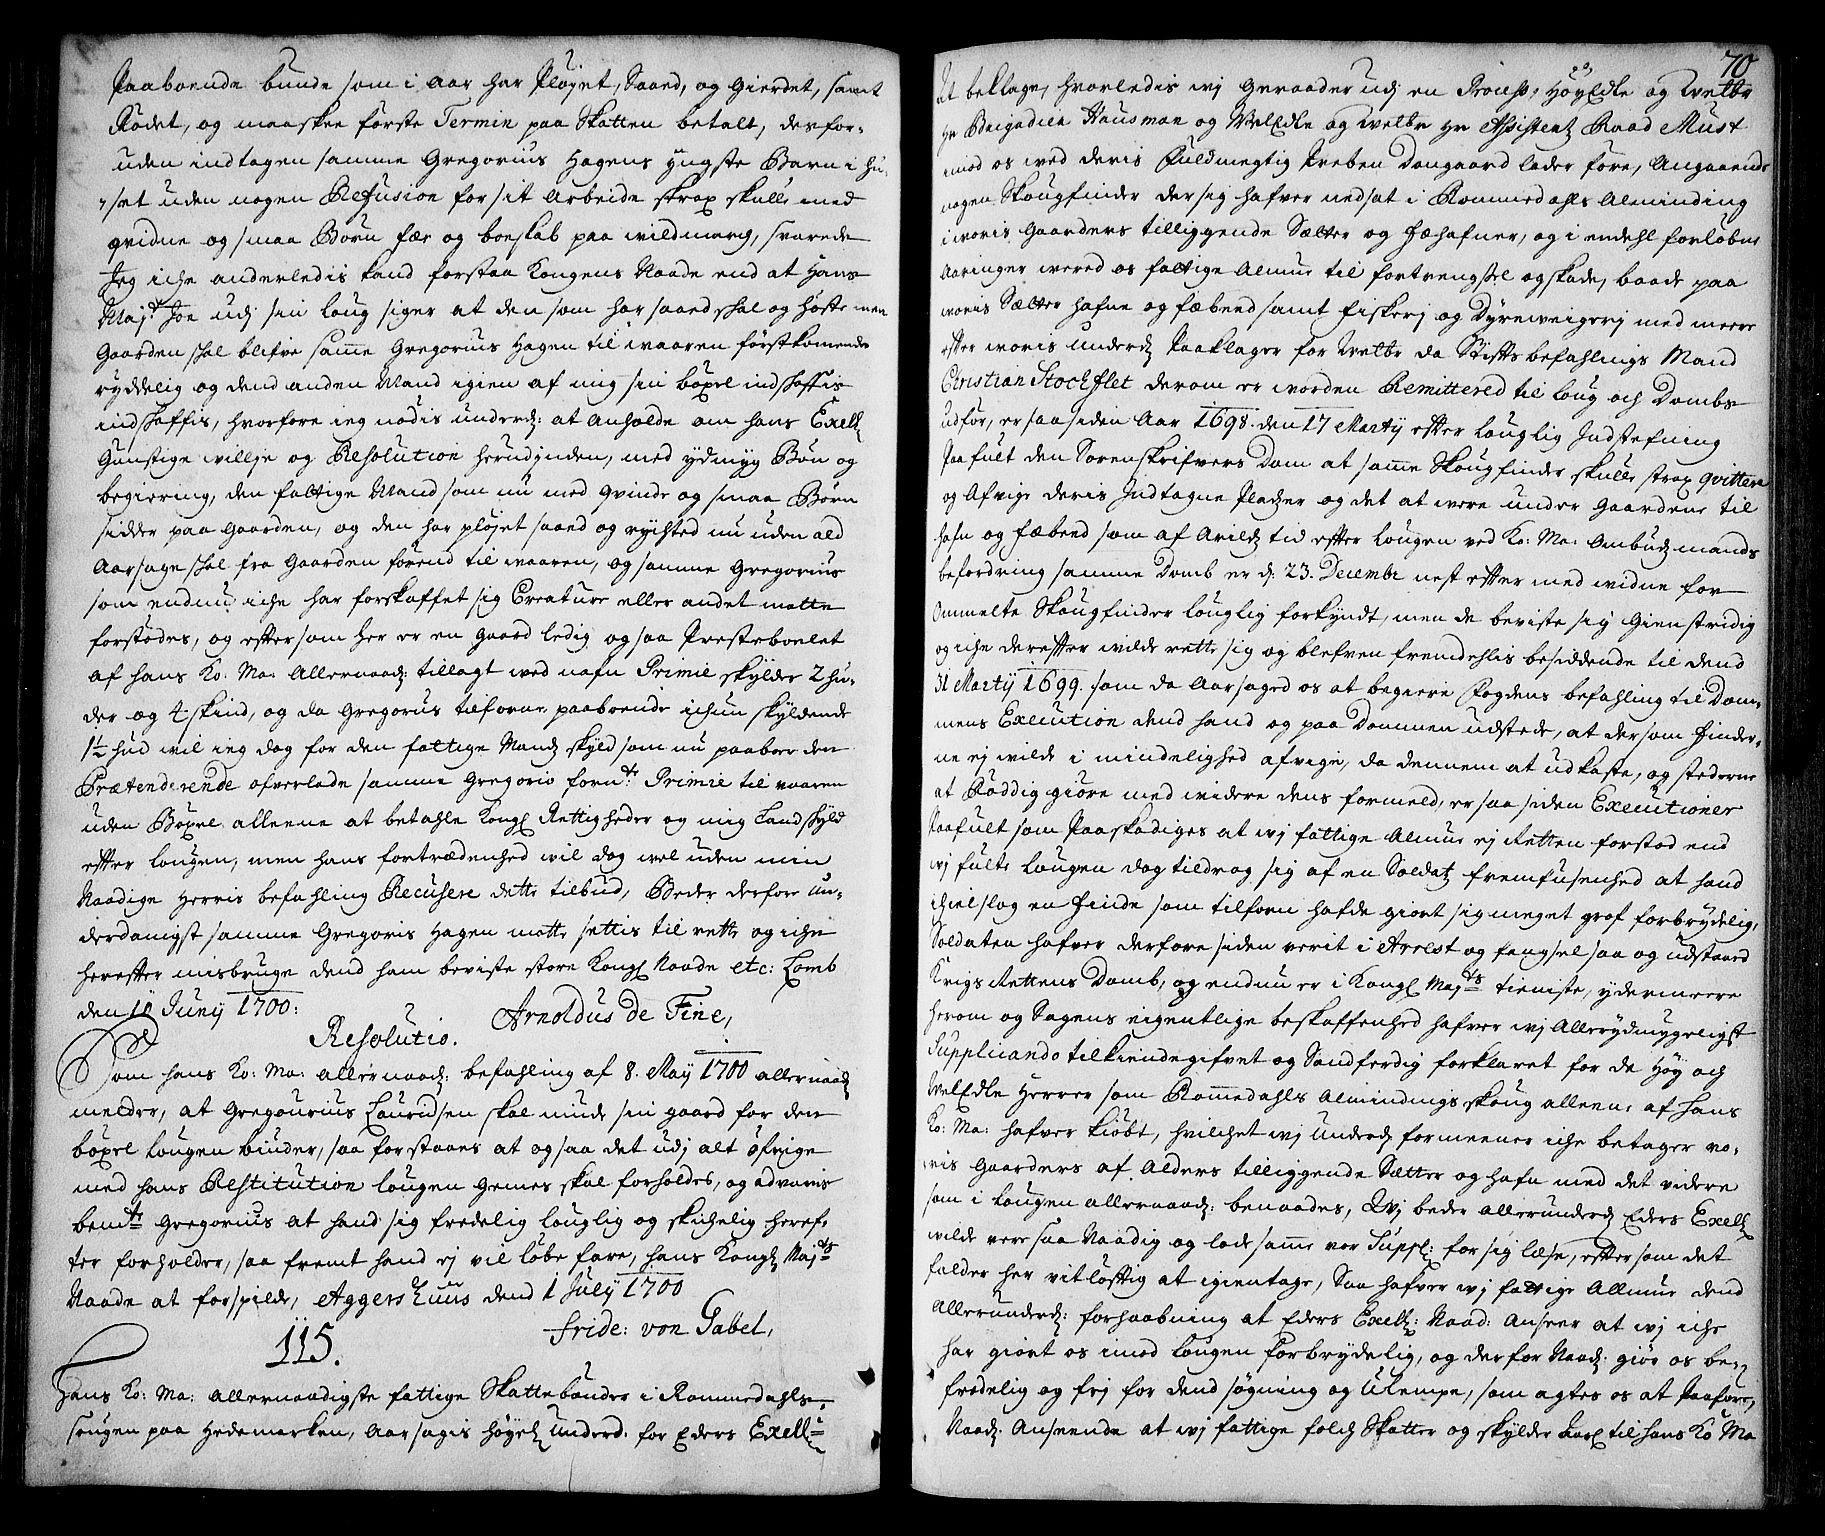 Paaboende bunde som i Aar har Pløyet, Saaed, og Gierdet, samt
Rødet, og maaskee første Termin paa Skatten betalt, desfor-
uden indtagen samme Gregorius Hagens yngste Barn i hu-
set uden nogen Refusion for sit Arbeide strax skulle med
qvidne og smaa Børn fær og boeskab paa wildmarg, svarede
Jeg iche anderledis kand forstaa Kongens Naade end at Hans
May:t Joe udj sin loug siger at den som har saaed skal og høste men
Gaarden skal blifve samme Gregorius Hagen til vaaren førstkomende
ryddelig og dend anden Mand igien af mig sin böxel indshaffis
indshaffis, hvorfore ieg nødis underd: at Anholde om hans Exell
Gunstige willje og Resolution herudjnden, med ydmyg Bøn og
begiering, den fattige Mand som nu med qvinde og smaa Børn
sidder paa Gaarden, og den har pløjet saaed og rychted nu uden ald
Aarsage skal fra Gaarden førend til vaaren, og samme Gregorius
som endnu iche har forskaffet sig Creature eller andet motte
forstødes, og effter som her er en gaard ledig og saa Prestebolet
af hans Ko: Ma: Allernaad: tillagt wed nafn Primie skylder 2 hu-
der og 4 skind, og da Gregorus tilforne paaboende ichun skyldende
1½ hud wil ieg dog for den fattige Mands skyld som nu paaboer den
Prætenderende ofverlade samme Gregorio forn:te Primie til vaaren
uden Böxel alleene at betahle Kongl Rettigheder og mig Landskyld
effter Lougen, men hans fortrædenhed wil dog vel uden min
Naadige Herris befahling Recusere dette tilbud, Beder derfore un-
derdanigst samme Gregoris Hagen motte settis til rette og iche
herefter misbruge dend ham beviste store Kongl Naade etc: Lomb
den 10 Junij 1700: Arnoldus de Fine,
Resolutio.
Som hans Ko: Ma: allernaad: befahling af 8. Maij 1700 allernaad
melder, at Gregourius Lauridsen skal niude sin gaard for den
böxel lougen biuder, saa forstaaes at og saa det udj alt öfrige
med hans Restitution lougen gemes skal forholdes, og advaris
bem:te Gregorius at hand sig fredelig louglig og skichelig heref-
ter forholder, saa fremt hand ej vil løbe fare, hans Kongl May:ts
Naade at forspilde, Aggershuus dend 1 July 1700
Fride: von Gabel,
115.
Hans Ko: Ma: allernaadigste fattige Skattebønder i Rommedahls
sougen paa Hedemarken, Aarsagis høyel underd: for Eders Exell
70
At beklage, hvorledis wj Geraader udj en Process, HøyEdle og Welbr
Hr Brigadier Hausman og WelEdle og welbr Hr Assistentz Raad Must
imod os wed deris Fuldmegtig Preben Dongaard laderføre, Angaaende
nogen Skougfinder der sig hafver nedsat i Rommedahls Alminding
i woris Gaarders tilliggende Sætter og Fæhafner, og i endehl forløbne
Aaringer wered os fattige Almue til fortrengsel og skade, baade paa
woris Sætter hafne og fæbeed samt fiskerj og Dyreveigerj med meere
effter woris underd Paaklager for Welbr da Stiftsbefahlings Mand
Christian Stockflet derom er worden Remittered til loug och Dombs
udfør, er saa siden Aar 1698. den 17 Martij efter louglig Indstefning
Paafult den Sorenskrifvers Dom at samme Skougfinder skulle strax qvittere
og Afvige deris Indtagne Pladzer og det at were under Gaardene til
hafn og fæbeed som af Arildz tid effter lougen ved Ko: Ma: Ombudzmands
befordring samme Domb er d: 23. Decembr nest effter med widne for
Ommelte Skougfinder louglig forkyndt, men de beviste sig Gienstridig
og iche dereffter wilde rette sig og blefven fremdehlis besiddende til dend
31 Martij 1699. som da Aarsaged os at begiere Fogdens befahling til Dom-
mens Execution dend hand og paa Dommen udstede, at dersom Finder-
ne ej wilde i mindelighed afvige, da dennem at udkaste, og stederne
at Røddiggiøre med widere dens formeld, er saa siden Executioner
Paafult som Paaskadiges at wj fattige Almue ej Retten forstod end
wj fulte lougen dog tildrog sig af en Soldatz fremfusenhed at hand
ihielslog en Finde som tilforn hafde giort sig meget grof forbrydelig,
Soldaten hafver derfore siden verit i Arrest og fengsel saa og udstaaed
Krigs Rettens Domb, og endnu er i Kongl May:ts tieniste, ydermeere
herom og Sagens eigentlige beskaffenhed hafver wj Allerydmygeligst
Supplicando tilkiendegifvet og Sandferdig forklaret for de Høy och
WelEdle Herrer som Romedahls Almindings skoug alleene af Hans
Ko: Ma: hafver kiøbt, hvilchet wj Underd formeener iche betager vo-
ris Gaarders af Alders tilliggende Sætter og hafn med det videre
som i lougen allernaad: benaades, Wj beder allerunderd Eders Exell
wilde vere saa Naadig og lade samme vor Suppl: for sig læse, effter som det
falder her vitløftig at igientage, Saa hafver wj fattige Allmue dend
Allerunderd: forhaabning at Eders Exell: Naad: Anseer at wj iche
har giort os imod lougen forbrydelig, og derfor Naad: giør os be-
fredelig og frj for dend søgning og Ulempe, som agtes os at Paaføre,
Naad: Anseende at wj fattige folch Skatter og skylder till hans Ko Ma